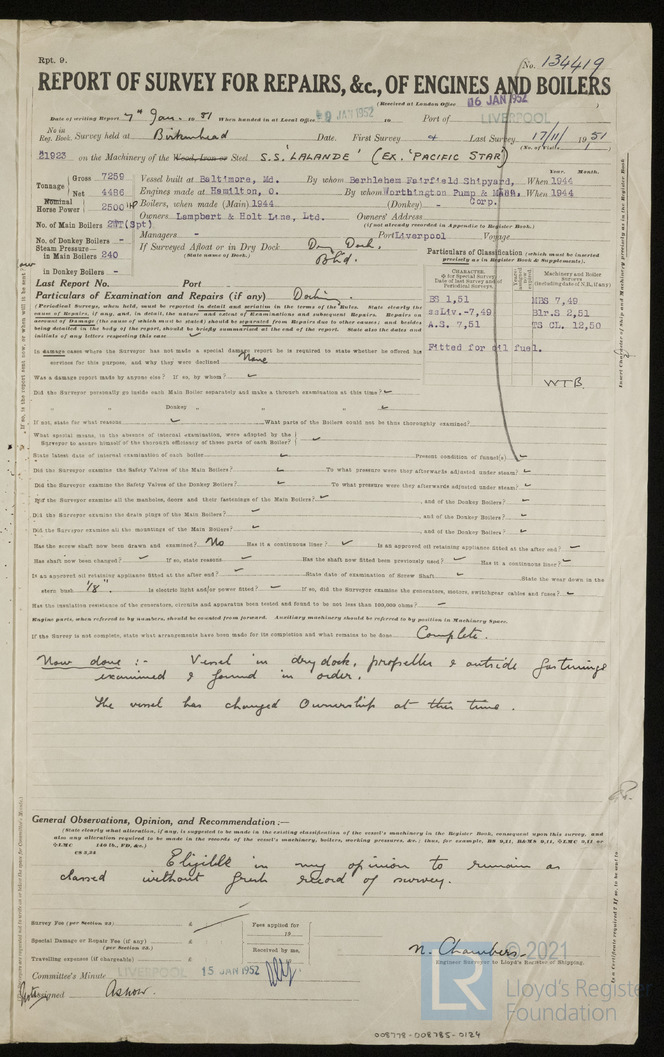 Rpt. 9.
No. 134419
REPORT OF SURVEY FOR REPAIRS, &c., OF ENGINES AND BOILERS
(Received at London Office 16 JAN 1952 )
Date of writing Report 7th Jan. 1951 When handed in at Local Office 10 JAN 1952 Port of LIVERPOOL
No in Reg. Book. Survey held at Birkenhead Date. First Survey 4 Last Survey 17/11/ 1951
21923 on the Machinery of the Wood, Iron or Steel S.S. 'LALANDE' (EX. 'PACIFIC STAR')
Tonnage Gross 7259 Vessel built at Baltimore, Md. By whom Berhlehem Fairfield Shipyard, When 1944
Net 4486 Engines made at Hamilton, O. By whom Worthington Pump & Mach. Corp. When 1944
Nominal Horse Power 2500 HP Boilers, when made (Main) 1944 (Donkey) -
No. of Main Boilers 2WT(Spt) Owners Lampert & Holt Line, Ltd. Owners' Address
(if not already recorded in Appendix to Register Book.)
No. of Donkey Boilers - Managers - Port Liverpool Voyage
Steam Pressure in Main Boilers 240 If Surveyed Afloat or in Dry Dock Dry Dock,
(State name of Dock.) Bhd.
in Donkey Boilers -
Particulars of Classification (which must be inserted precisely as in Register Book & Supplements).
Last Report No. Port
Particulars of Examination and Repairs (if any) Docking.
BS 1,51 MBS 7,49
ssLiv.-7,49 Blr.S 2,51
A.S. 7,51 TS CL. 12,50
Fitted for oil fuel.
WTB.
In damage cases where the Surveyor has not made a special damage report he is required to state whether he offered his
services for this purpose, and why they were declined None
Was a damage report made by anyone else? If so, by whom?
Did the Surveyor personally go inside each Main Boiler separately and make a thorough examination at this time?
„ „ Donkey „ „ „ „
If not, state for what reasons What parts of the Boilers could not be thus thoroughly examined?
What special means, in the absence of internal examination, were adopted by the
Surveyor to assure himself of the thorough efficiency of these parts of each Boiler?
State latest date of internal examination of each boiler Present condition of funnel(s)
Did the Surveyor examine the Safety Valves of the Main Boilers? To what pressure were they afterwards adjusted under steam?
Did the Surveyor examine the Safety Valves of the Donkey Boilers? To what pressure were they afterwards adjusted under steam?
Did the Surveyor examine all the manholes, doors and their fastenings of the Main Boilers? , and of the Donkey Boilers?
Did the Surveyor examine the drain plugs of the Main Boilers? , and of the Donkey Boilers?
Did the Surveyor examine all the mountings of the Main Boilers? , and of the Donkey Boilers?
Has the screw shaft now been drawn and examined? No Has it a continuous liner? Is an approved oil retaining appliance fitted at the after end?
Has shaft now been changed? If so, state reasons Has the shaft now fitted been previously used? Has it a continuous liner?
Is an approved oil retaining appliance fitted at the after end? State date of examination of Screw Shaft State the wear down in the
stern bush 1/8" Is electric light and/or power fitted? If so, did the Surveyor examine the generators, motors, switchgear cables and fuses?
Has the insulation resistance of the generators, circuits and apparatus been tested and found to be not less than 100,000 ohms?
Engine parts, when referred to by numbers, should be counted from forward. Auxiliary machinery should be referred to by position in Machinery Space.
If the Survey is not complete, state what arrangements have been made for its completion and what remains to be done Complete.
Now done :- Vessel in dry dock, propeller & outside fastenings
examined & found in order.
The vessel has changed Ownership at this time.
General Observations, Opinion, and Recommendation:—
(State clearly what alteration, if any, is suggested to be made in the existing classification of the vessel's machinery in the Register Book, consequent upon this survey, and
also any alteration required to be made in the records of the vessel's machinery, boilers, working pressures, &c.; thus, for example, BS 9,31, B&MS 9,31, LMC 9,31 or
LMC 140 lb., FD, &c.)
CS 9,34
Eligible in my opinion to remain as
classed without fresh record of survey.
Survey Fee (per Section 23) £
Fees applied for
19
Special Damage or Repair Fee (if any) £
(per Section 23.)
Received by me,
Travelling expenses (if chargeable) £
N. Chambers
Engineer Surveyor to Lloyd's Register of Shipping.
Committee's Minute LIVERPOOL 15 JAN 1952
Assigned As now.
© 2021
LR
Lloyd's Register
Foundation
008778-008785-0124